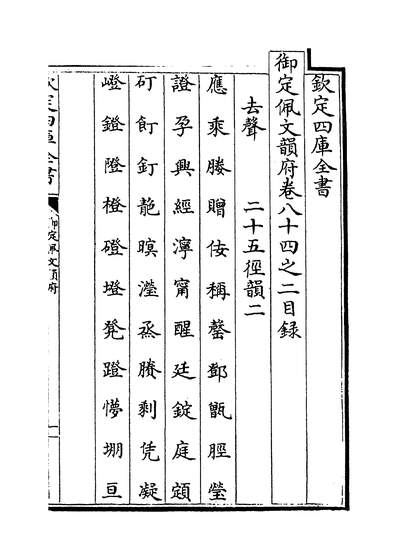 欽定四庫全書
御定佩文韻府卷八十四之二目録
去聲 二十五徑韻二
應乘媵贈佞稱罄鄧甑脛瑩
證孕興經濘甯醒廷錠庭
矴飣釘靘暝瀅烝賸剩凭凝
嶝鐙隥橙磴墱凳蹬懜堋亘
欽定四庫全書
御定佩文韻府